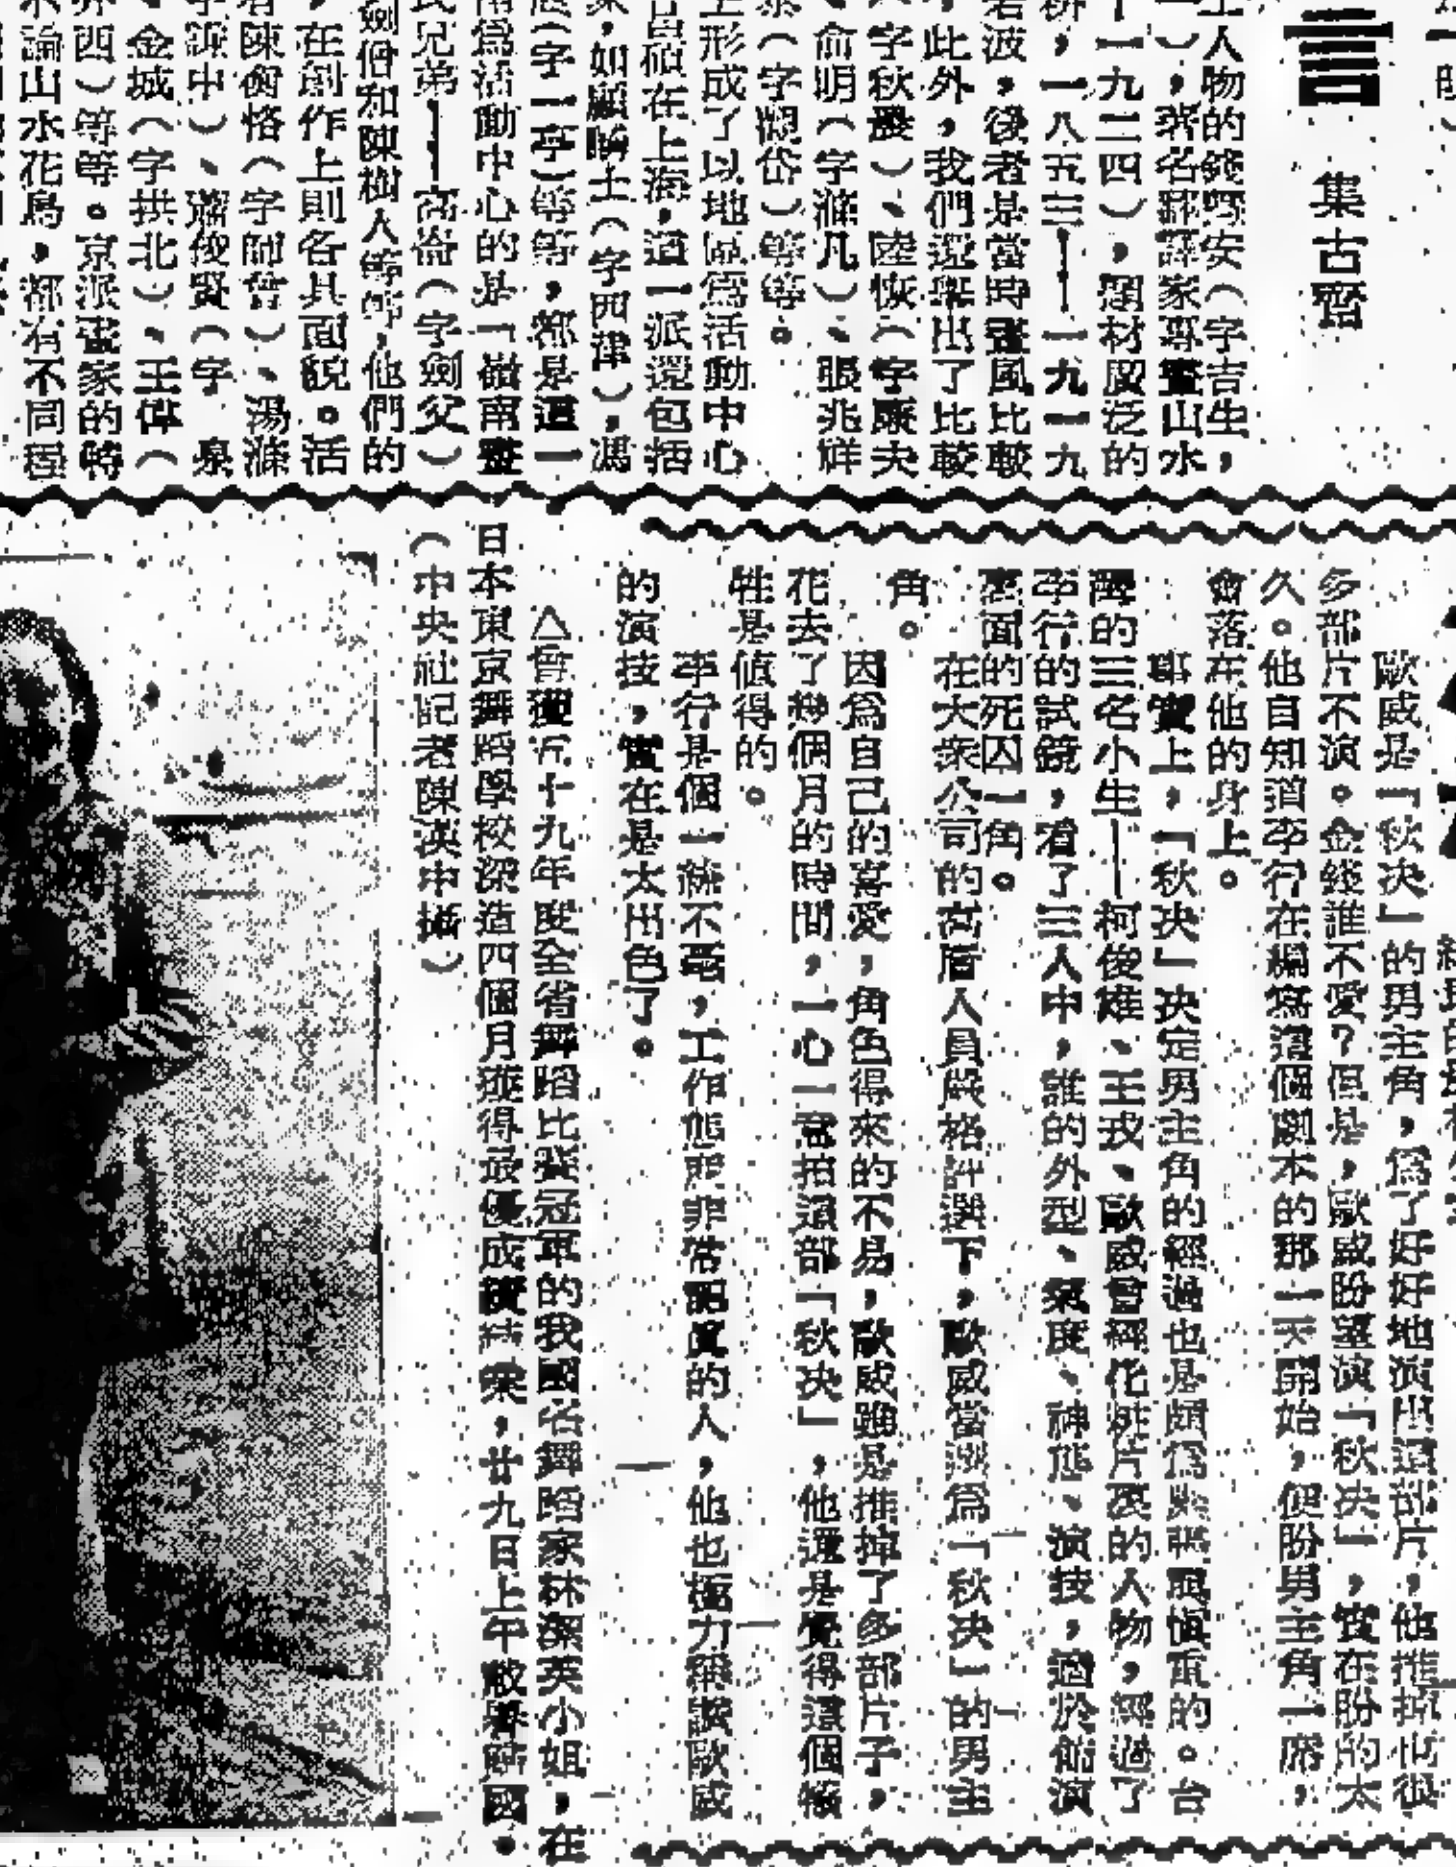 言
集古齋
人物的錢慧安（字吉生，
），著名翻譯家專畫山水
一九二四），題材廣泛的
，一八五三——一九一九
若波，後者是當時畫風比較
此外，我們還舉出了比較
（字秋農）、陸恢（字廉夫
、俞明（字滌凡）、張兆祥
（字觀岱）等等。
上形成了以地區為活動中心
昌碩在上海，這一派還包括
，如顧麟士（字西津），馮
（字一亭）等等，都是這一
為活動中心的是「嶺南畫
氏兄弟——高崙（字劍父）
劍僧和陳樹人等等，他們的
，在創作上則各具面貌。活
陳衡恪（字師曾）、湯滌
中）、蕭俊賢（字泉
、金城（字拱北）、王偉（
四）等等。京派畫家的特
論山水花鳥，都有不同程
歐威是「秋決」的男主角，為了好好地演出這部片，他推掉很
多部片不演。金錢誰不愛？但是，歐威盼望演「秋決」，實在盼的太
久。他自知道李行在編寫這個劇本的那一天開始，便盼男主角一席，
會落在他的身上。
事實上，「秋決」決定男主角的經過也是頗為慎重的。台
灣的三名小生——柯俊雄、王戎、歐威曾經化粧片裏的人物，經過了
李行的試鏡，看了三人中，誰的外型、氣度、神態、演技，適於飾演
裏面的死囚一角。
在大眾公司的高層人員嚴格評選下，歐威當選為「秋決」的男主
角。
因為自己的喜愛，角色得來的不易，歐威雖是推掉了多部片子，
花去了幾個月的時間，一心一意拍這部「秋決」，他還是覺得這個犧
牲是值得的。
李行是個一絲不苟，工作態度非常認真的人，他也極力稱讚歐威
的演技，實在是太出色了。
△曾獲五十九年度全省舞蹈比賽冠軍的我國名舞蹈家林潔英小姐，在
日本東京舞蹈學校深造四個月獲得最優成績結業，廿九日上午啟程歸國。
（中央社記者陳漢中攝）